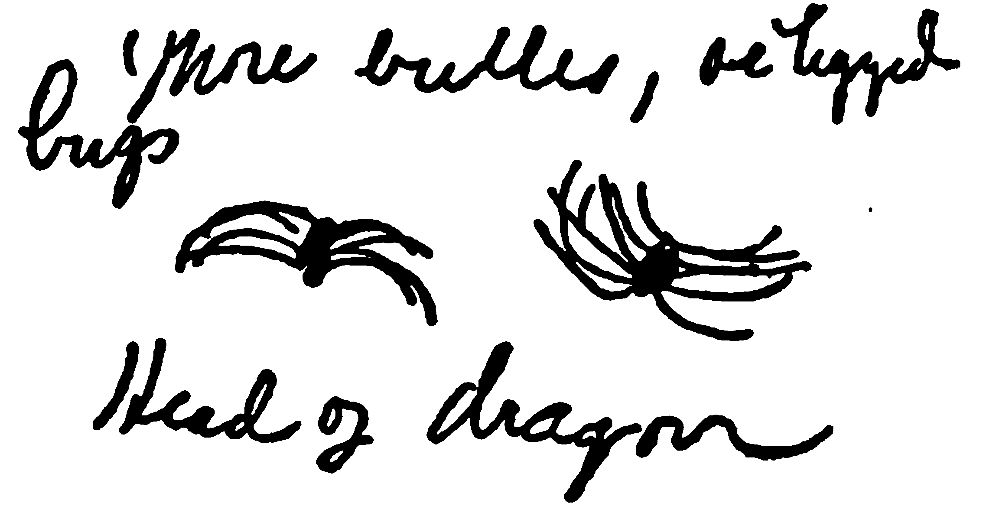 More beetles, legged
bugs
Head of dragon